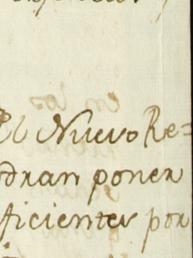 El Nuevo Re=
dran poner
ficientes por